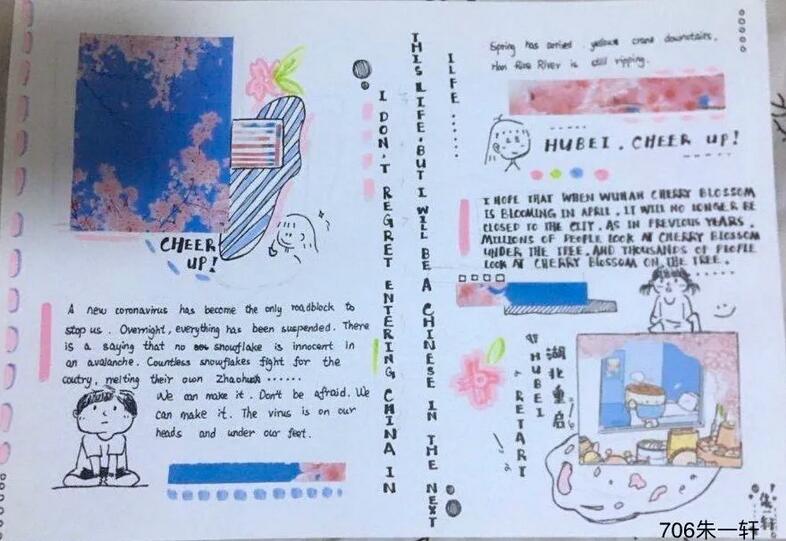 CHEER
UP!
A new coronavirus has become the only roadblock to
stop us. Overnight, everything has been suspended. There
is a saying that no snowflake is innocent in
an avalanche. Countless snowflakes fight for the
coutry, melting their own
We can make it. Don't be afraid. We
can make it. The virus is on our
heads and under our feet.
I DON'T REGRET ENTERING CHINA IN
THIS LIFE, BUT I WILL BE A CHINESE IN THE NEXT
ILFE ......
Spring has arrived, yellow crane downstairs.
Han River is still ripping.
HUBEI, CHEER UP!
I HOPE THAT WHEN WUHAN CHERRY BLOSSOM
IS BLOOMING IN APRIL, IT WILL NO LONGER BE
CLOSED TO THE CITY. AS IN PREVIOUS YEARS,
MILLIONS OF PEOPLE LOOK AT CHERRY BLOSSOM
UNDER THE TREE, AND THOUSANDS OF PEOPLE
LOOK AT CHERRY BLOSSOM ON THE TREE.
HUBEI
RETART
湖北重启
朱一轩
706朱一轩